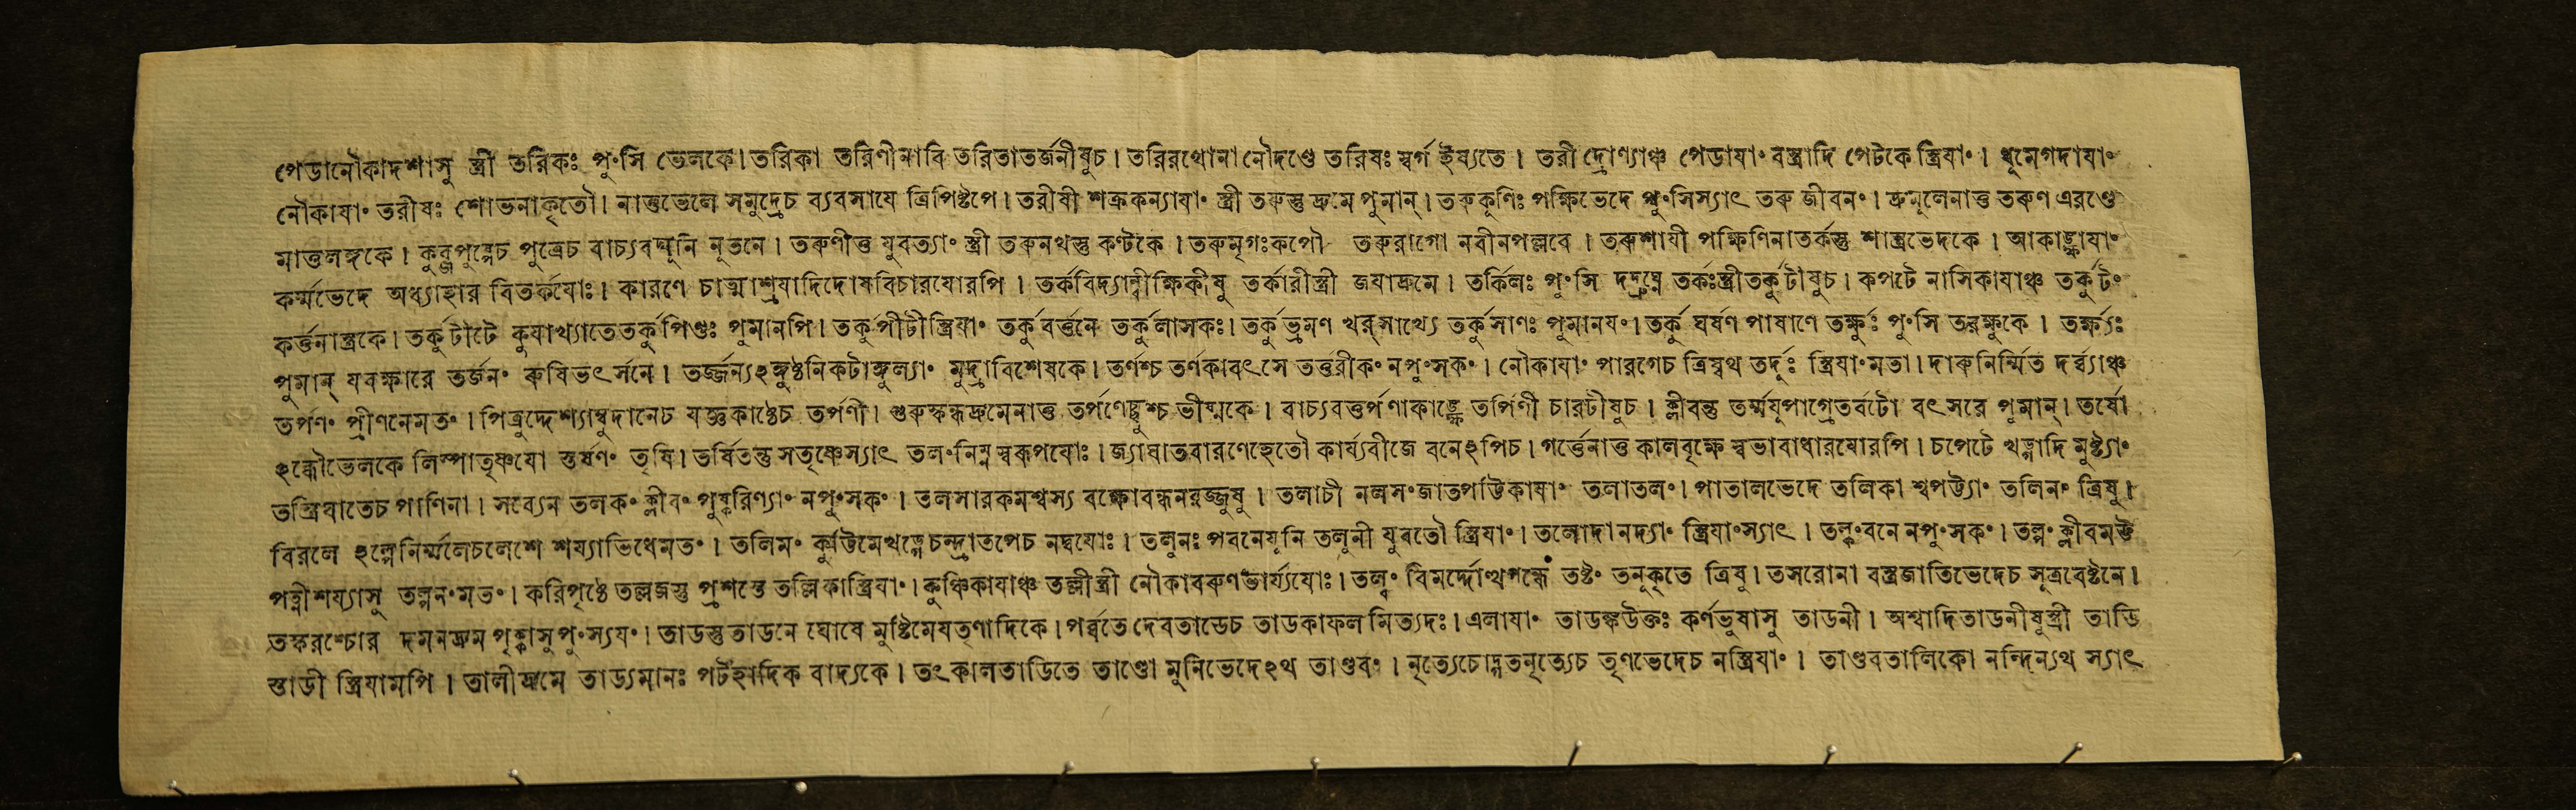 পেডানৌকাদশাসু স্ত্রী তরিকঃ পুংসি ভেলকে। তরিকা তরিণীনাবি তরিতাতর্জনীষুচ। তরিরথোনা নৌদণ্ডে তরিষঃ স্বর্গ ইষ্যতে। তরী দ্রোণ্যাঞ্চ পেডাযাং বস্ত্রাদি পেটকে স্ত্রিযাং। ধূমেগদাযাং
নৌকাযাং তরীষঃ শোভনাকৃতৌ। নাত্তুভেলে সমুদ্রেচ ব্যবসাযে ত্রিপিষ্টপে। তরীষী শক্রকন্যাযাং স্ত্রী তরুস্তু দ্রুমে পুমান্। তরুকূণিঃ পক্ষিভেদে পুংসিস্যাৎ তরু জীবনং। দ্রুমূলেনাত্ত তরুণ এরণ্ডে
মাত্তলঙ্গকে। কুব্জপুষ্পেচ পুত্রেচ বাচ্যবদ্যূনি নূতনে। তরুণীত্ত যুবত্যাং স্ত্রী তরুনখস্তু কণ্টকে। তরুমৃগঃকপৌ তরুরাগো নবীনপল্লবে। তরুশাযী পক্ষিণিনাতর্কস্তু শাস্ত্রভেদকে। আকাঙ্ক্ষাযাং
কর্ম্মভেদে অধ্যাহার বিতর্কযোঃ। কারণে চাত্মাশ্রযাদিদোষবিচারযোরপি। তর্কবিদ্যান্বীক্ষিকীষু তর্কারীস্ত্রী জযাদ্রুমে। তর্কিলঃ পুংসি দদ্রুঘ্নে তর্কঃস্ত্রীতর্কুটীষুচ। কপটে নাসিকাযাঞ্চ তর্কুটং
কর্ত্তনাস্ত্রকে। তর্কুটাটে কুযাখ্যাতেতর্কুপিণ্ডঃ পুমানপি। তর্কুপীটীস্ত্রিযাং তর্কুবর্ত্তনে তর্কুলাসকঃ। তর্কুভ্রমণ তর্কুসাণঃ পুমানযং। তর্কু ঘর্ষণ পাষাণে তর্ক্ষুঃ পুংসি তরক্ষুকে। তর্ক্ষ্যঃ
পুমান্ যবক্ষারে তর্জনং রুষিভৎর্সনে। তর্জ্জন্যঽঙ্গুষ্ঠনিকটাঙ্গুল্যাং মুদ্রাবিশেষকে। তর্ণশ্চ তর্ণকোবৎসে তত্তরীকং নপুংসকং। নৌকাযাং পারগেচ ত্রিষ্বথ তর্দুঃ স্ত্রিযাংমতা। দারুনির্ম্মিত দর্ব্ব্যাঞ্চ
তর্পণং প্রীণনেমতং। পিত্রুদ্দেশ্যাম্বুদানেচ যজ্ঞকাষ্ঠেচ তর্পণী। গুরুস্কন্ধদ্রুমেনাত্ত তর্পণেচ্ছুশ্চ ভীষ্মকে। বাচ্যবত্তর্পণাকাঙ্ক্ষে তর্পিণী চারটীষুচ। ক্লীবন্তু তর্ম্মযুপাগ্রেতর্বটো বৎসরে পুমান্। তর্ষো
ঽর্কোভেলকে লিপ্সাতৃষ্ণযো স্তর্ষণং তৃষি। তর্ষিতন্তু সতৃষ্ণেস্যাৎ তলংনিম্ন স্বরূপযোঃ। জ্যাঘাতবারণেহেতৌ কার্য্যবীজে বনেঽপিচ। গর্ত্তেনাত্ত কালবৃক্ষে স্বভাবাধারযোরপি। চপেটে খড্গাদি মুষ্ট্যাং
তন্ত্রিঘাতেচ পাণিনা। সব্যেন তলকং ক্লীবং পুষ্করিণ্যাং নপুংসকং। তলসারকমশ্বস্য বক্ষোবন্ধনরজ্জুষু। তলাচী নলসংজাতপট্টিকাযাং তলাতলং। পাতালভেদে তলিকা শ্বপট্যাং তলিনং ত্রিষু।
বিরলে ঽল্পেনির্ম্মলেচলেশে শয্যাভিধেমতং। তলিমং কুট্টিমেখড়্গেচন্দ্রাতপেচ নদ্বযোঃ। তলুনঃ পবনেযূনি তলুনী যুবতৌ স্ত্রিযাং। তলোদানদ্যাং স্ত্রিযাংস্যাৎ। তল্কংবনে নপুংসকং। তল্পং ক্লীবমট্ট
পত্নীশয্যাসু তল্পনংমতং। করিপৃষ্ঠে তল্লজস্তু প্রশস্তে তল্লিকাস্ত্রিযাং। কুঞ্চিকাযাঞ্চ তল্লীস্ত্রী নৌকাবরুণভার্য্যযোঃ। তল্বং বিমর্দ্দোত্থগন্ধে তষ্টং তনূকৃতে ত্রিষু। তসরোনা বস্ত্রজাতিভেদেচ সূত্রবেষ্টনে।
তস্করশ্চোর দমনদ্রুম পৃক্কাসুপুংস্যযং। তাডস্তুতাডনে ঘোষে মুষ্টিমেযতৃণাদিকে। পর্ব্বতে দেবতাভেচ তাডকাফল মিত্যদঃ। এলাযাং তাডঙ্কউক্তঃ কর্ণভূষাসু তাডনী। অশ্বাদিতাডনীষুস্ত্রী তাডি
স্তাডী স্ত্রিযামপি। তালীদ্রুমে তাড্যমানঃ পটহাদিক বাদ্যকে। তৎকালতাডিতে তাণ্ডো মুনিভেদেঽথ তাণ্ডবং। নৃত্যেচোদ্ধতনৃত্যেচ তৃণভেদেচ নস্ত্রিযাং। তাণ্ডবতালিকো নন্দিন্যথ স্যাৎ